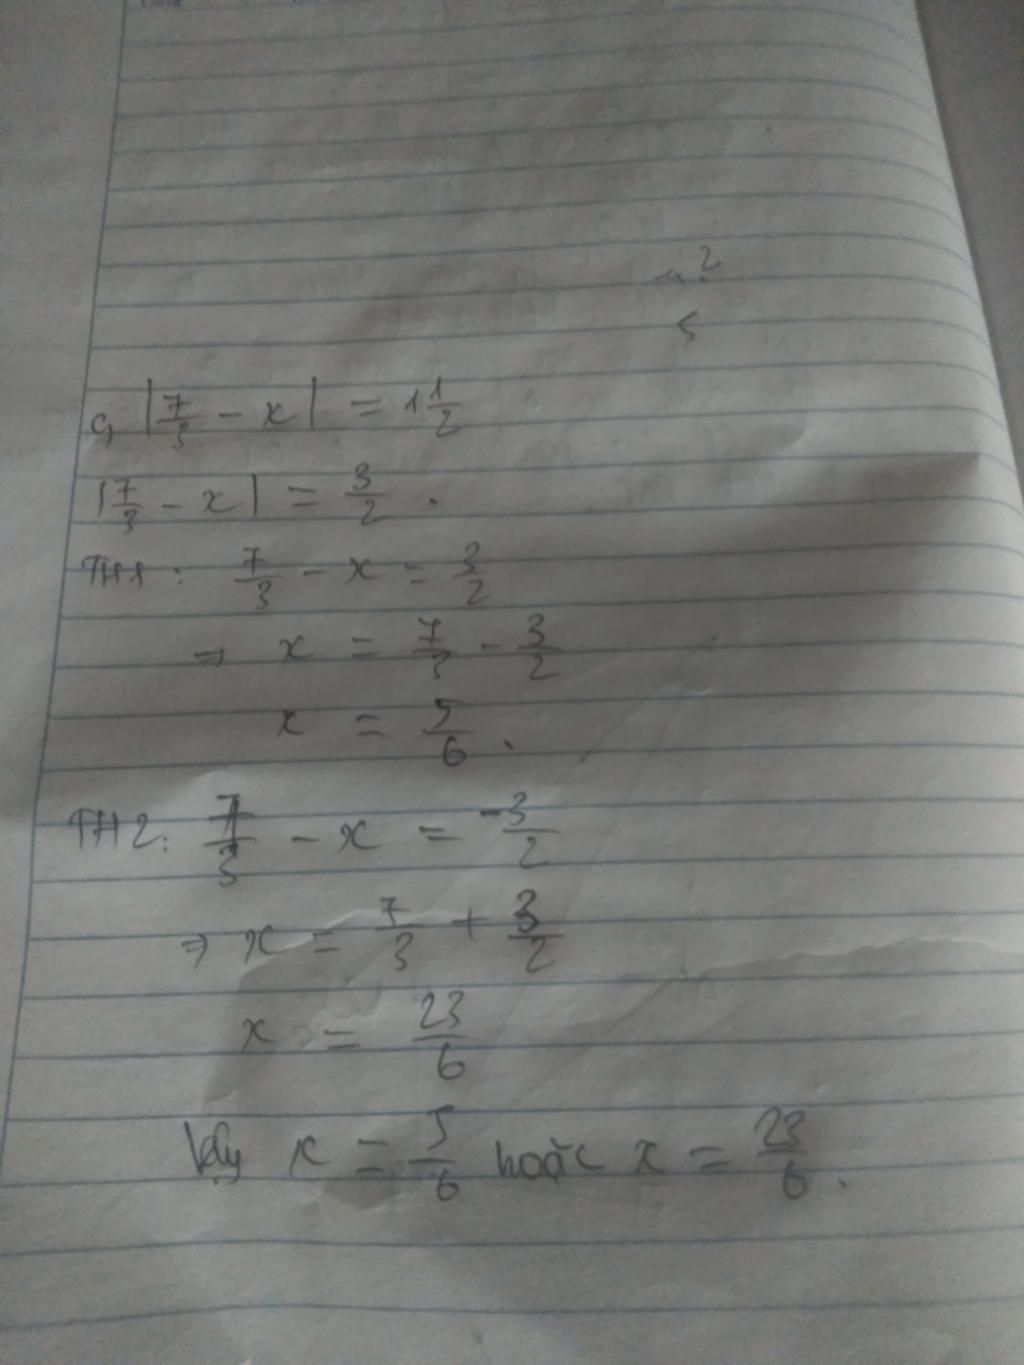 2
5
c, |7/3 - x| = 1 1/2
|7/3 - x| = 3/2 .
TH1: 7/3 - x = 3/2
⇒ x = 7/3 - 3/2
x = 5/6 .
TH2: 7/3 - x = -3/2
⇒ x = 7/3 + 3/2
x = 23/6
Vậy x = 5/6 hoặc x = 23/6 .